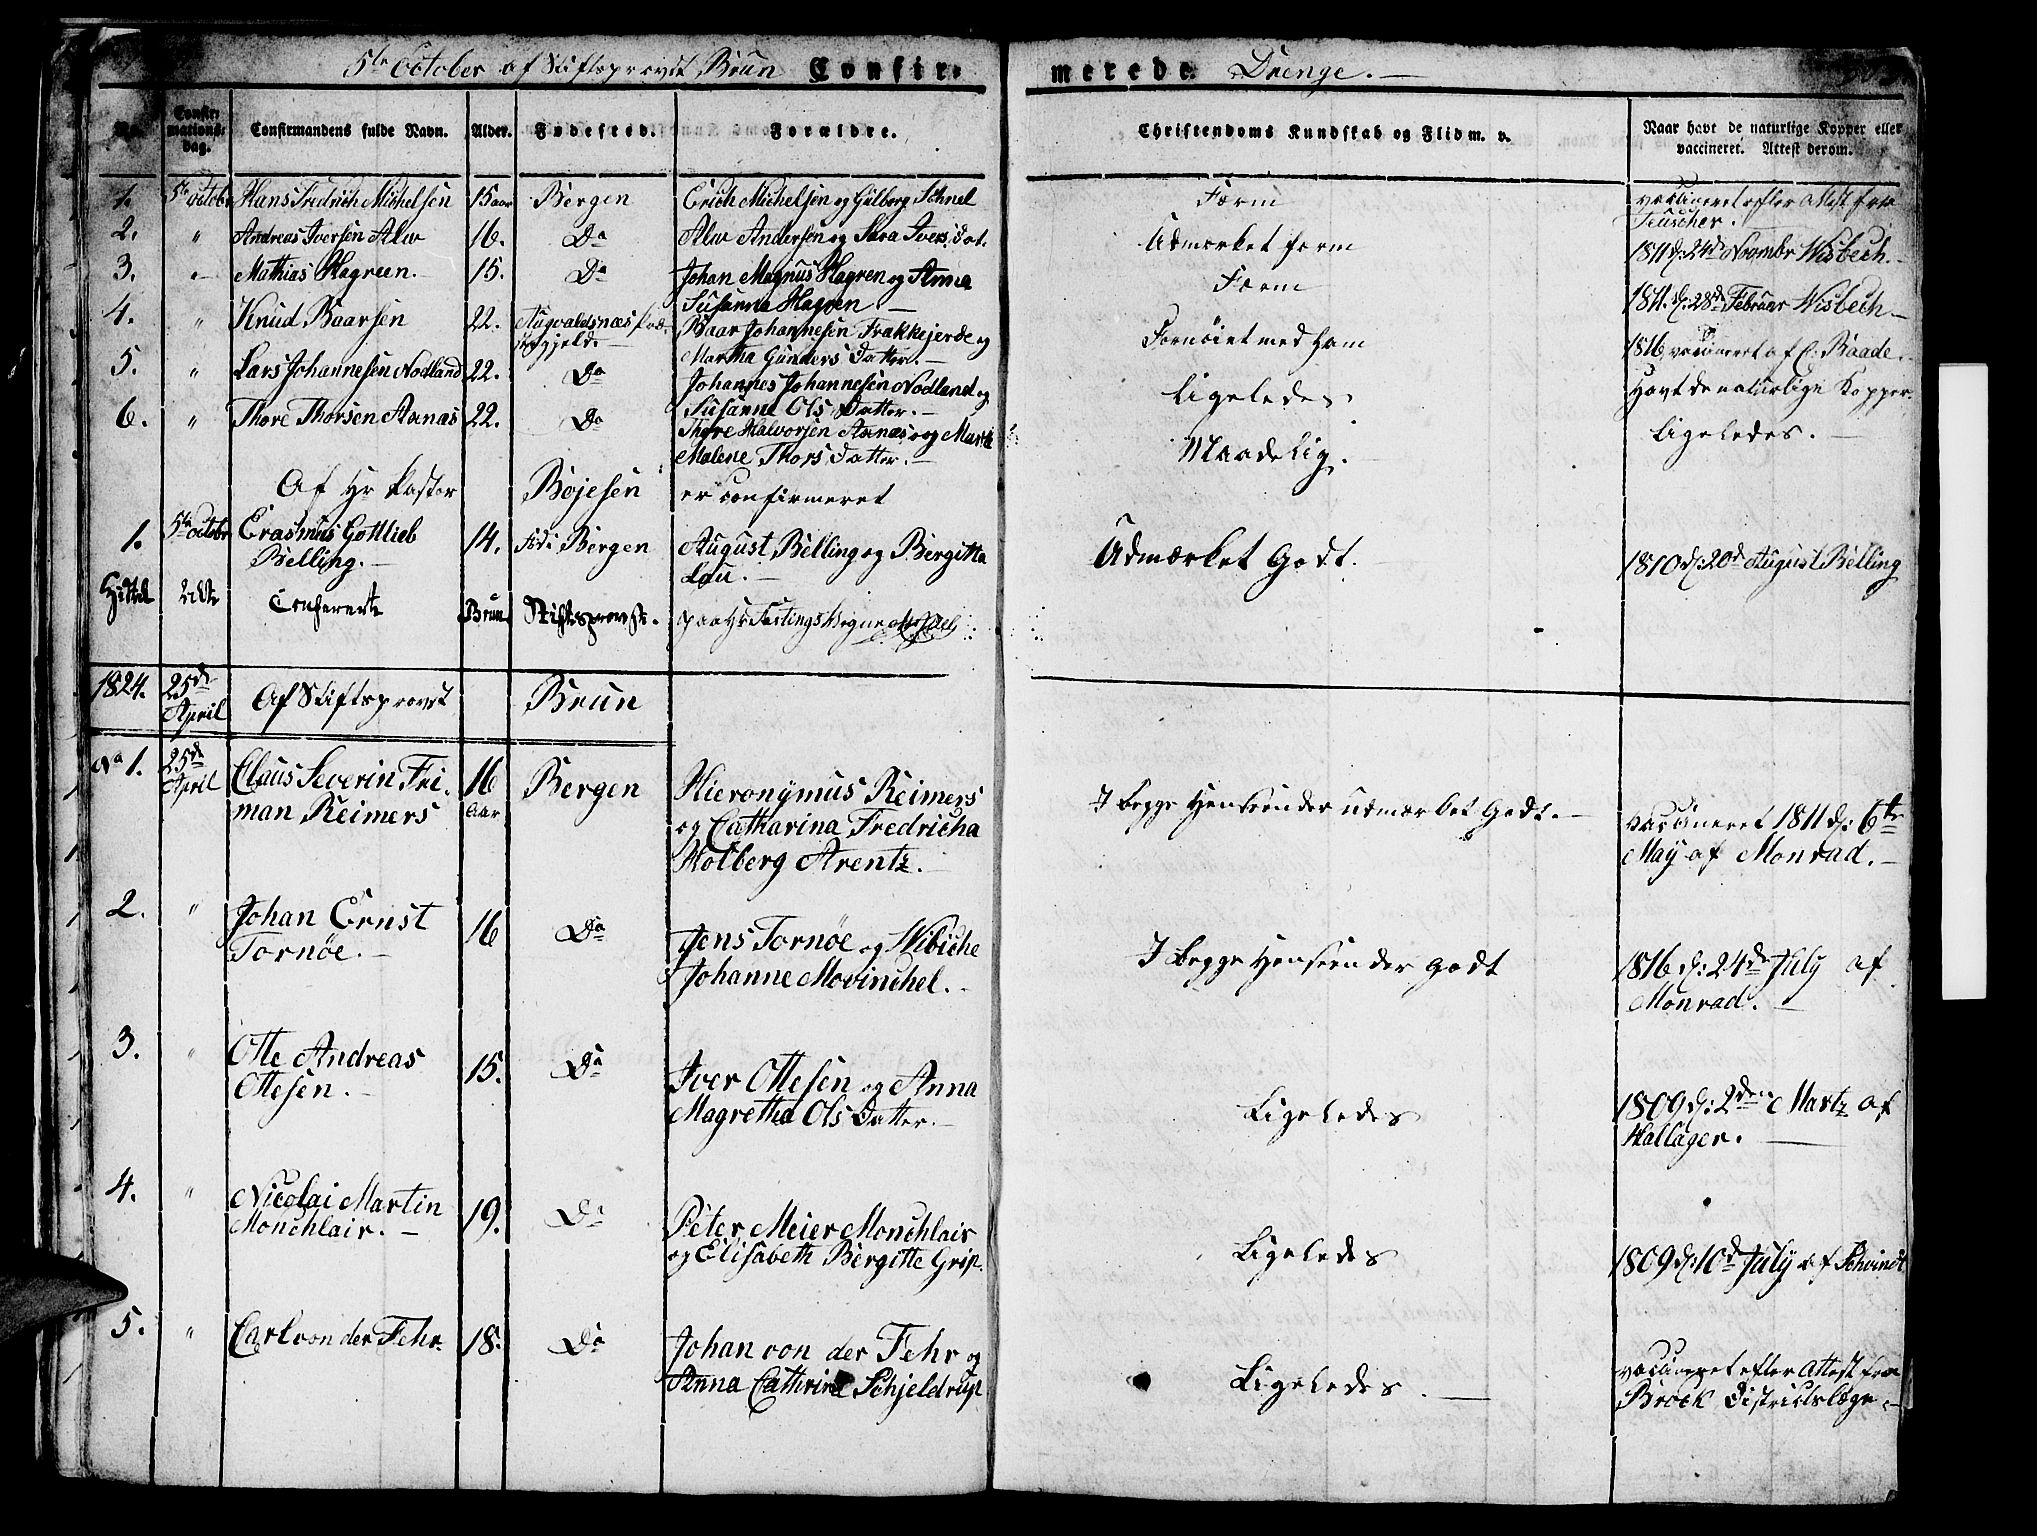 5te October af Stiftsprovst Brun Confir- merede Drenge. —
No. Confirmations-dag. Confirmandens fulde Navn. Alder. Fødested. Forældre. Christendoms Kundskab og Flid m. v. Naar havt de naturlige Kopper eller vaccineret. Attest derom.
1. 5te Octobr Hans Fredrich Michelsen 15 aar Bergen Erich Michelsen og Gulborg Schnel Færm vaccineret efter Attest fra
Fuscher.
2. " Andreas Iversen Alw 16. Do Alw Andersen og Sara Ivers Dat. Udmærket færm 1811 d: 24de Novmbr Wisbech. —
3. " Mathias Hagreen. 15. Do Johan Magnus Hagren og Anna Færm 1811. d: 28de Februar Wisbech —
Susanna Hagren —
4. " Knud Baarsen 22. Augvaldsnæs Præ- Baar Johannesen Frakkejerde og Fornøiet med ham 1816 vaccineret af C. Baade.
stegjeld — Martha Gunders Datter. —
5. " Lars Johannesen Nodland 22. Do Johannes Johannesen Nodland og Ligeledes Havt de naturlige Kopper.
Susanne Ols Datter. —
6. " Thore Thorsen Aænas 22. Do Thore Halvorsen Aænas og Marte Maadelig. Ligeledes. —
Malene Thors Datter. —
Af Hr Pastor Bøjesen er confirmeret
1. 5te Octobr Erasmus Gottlieb 14. Fød i Bergen August Belling og Bergitta Udmærket Godt. 1810 d: 20de August Belling
Belling. — Lau. —
Hidtil Confererte Brun Stiftsprovst. paa Hr Fastings Vegne
1824. 25de Af Stiftsprovst Brun
April
No 1. 25de Claus Severin Fri- 16 Bergen Hieronymus Reimers I begge Henseender udmærket Godt. — vaccineret 1811 d: 6te
April man Reimers Aar og Catharina Fredricha May af Monrad. —
Holberg Arentz. —
2. " Johan Ernst 16 Do Jens Tornøe og Wibiche I begge Henseender Godt 1816 d: 24de July af
Tornøe. — Johanne Movinchel. — Monrad. —
3. " Otte Andreas 15. Do Iver Ottesen og Anna Ligeledes 1809 d: 2den Martz af
Ottesen. — Magretha Ols Datter. — Hallager. —
4. " Nicolai Martin 19. Do Peter Meier Monchlair Ligeledes 1809 d: 10de July af Schvindt
Monchlair. — og Elisabeth Bergitte Grip.
5. " Carl von der Fehr. 18. Do Johan von der Fehr og Ligeledes. — vaccineret efter Attest fra
Anna Cathrine Schjeldrup Brock Districtslæge. —